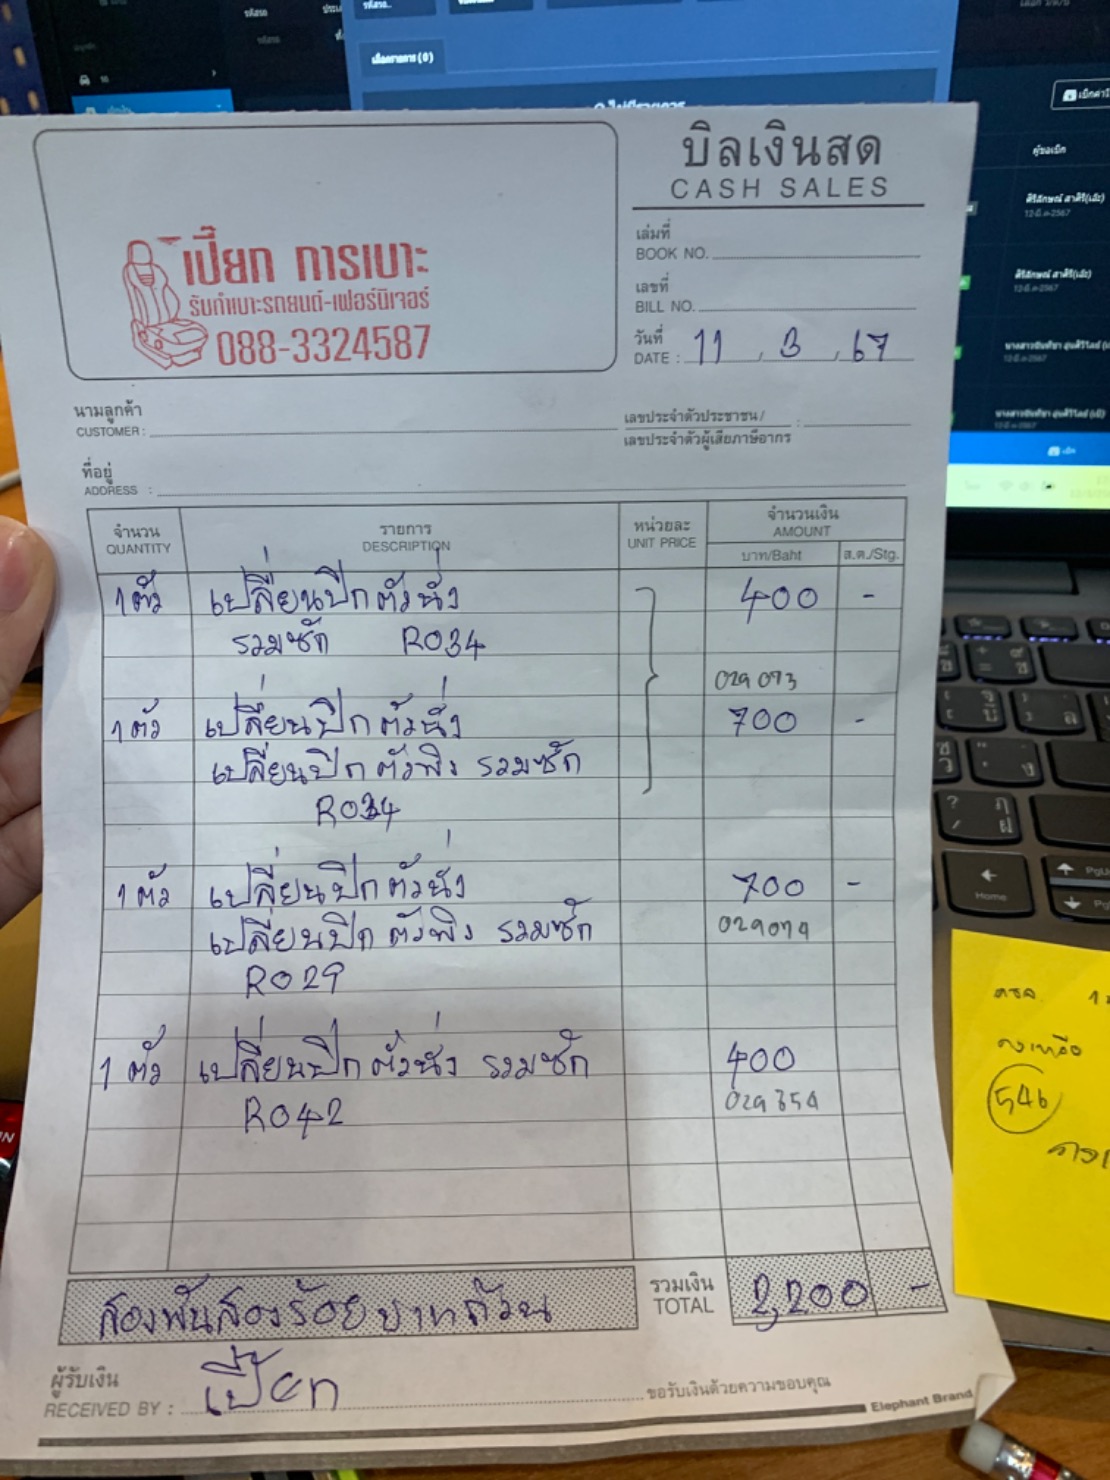 รหัสรถ
รหัสรถ..
เลือกรายการ (0)
ไม่มีรายการ
บิลเงินสด
CASH SALES
เล่มที่
BOOK NO.
เลขที่
BILL NO.
วันที่
DATE : 11 , 3 , 67
เปี๊ยก การเบาะ
รับทำเบาะรถยนต์-เฟอร์นิเจอร์
088-3324587
นามลูกค้า
CUSTOMER :
เลขประจำตัวประชาชน / :
เลขประจำตัวผู้เสียภาษีอากร
ที่อยู่
ADDRESS :
จำนวน รายการ หน่วยละ จำนวนเงิน
QUANTITY DESCRIPTION UNIT PRICE AMOUNT
บาท/Baht ส.ต./Stg.
1 ตัว เปลี่ยนปีกตัวนั่ง 400 -
รวมซัก RO34
029073
1 ตัว เปลี่ยนปีกตัวนั่ง 700 -
เปลี่ยนปีกตัวพิง รวมซัก
RO34
1 ตัว เปลี่ยนปีกตัวนั่ง 700 -
เปลี่ยนปีกตัวพิง รวมซัก 029074
RO29
1 ตัว เปลี่ยนปีกตัวนั่ง รวมซัก 400
RO42 029354
สองพันสองร้อยบาทถ้วน
รวมเงิน
TOTAL 2,200 -
ผู้รับเงิน
RECEIVED BY : เปี๊ยก
ขอรับเงินด้วยความขอบคุณ
Elephant Brand
ผู้ขอเบิก
ศิริลักษณ์ สาศิริ(เอ๋ะ)
12-มี.ค-2567
ศิริลักษณ์ สาศิริ(เอ๋ะ)
12-มี.ค-2567
เบิก
Home
PgU
คงเหลือ
546